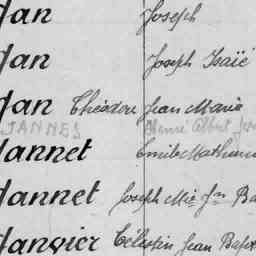 Jan Joseph
Jan Joseph Isaïe
Jan Théodore Jean Marie
JANNES Henri Albert
Jannet Emile Mathurin
Jannet Joseph Mie Jn Ba
Janvier Célestin Jean Bapt